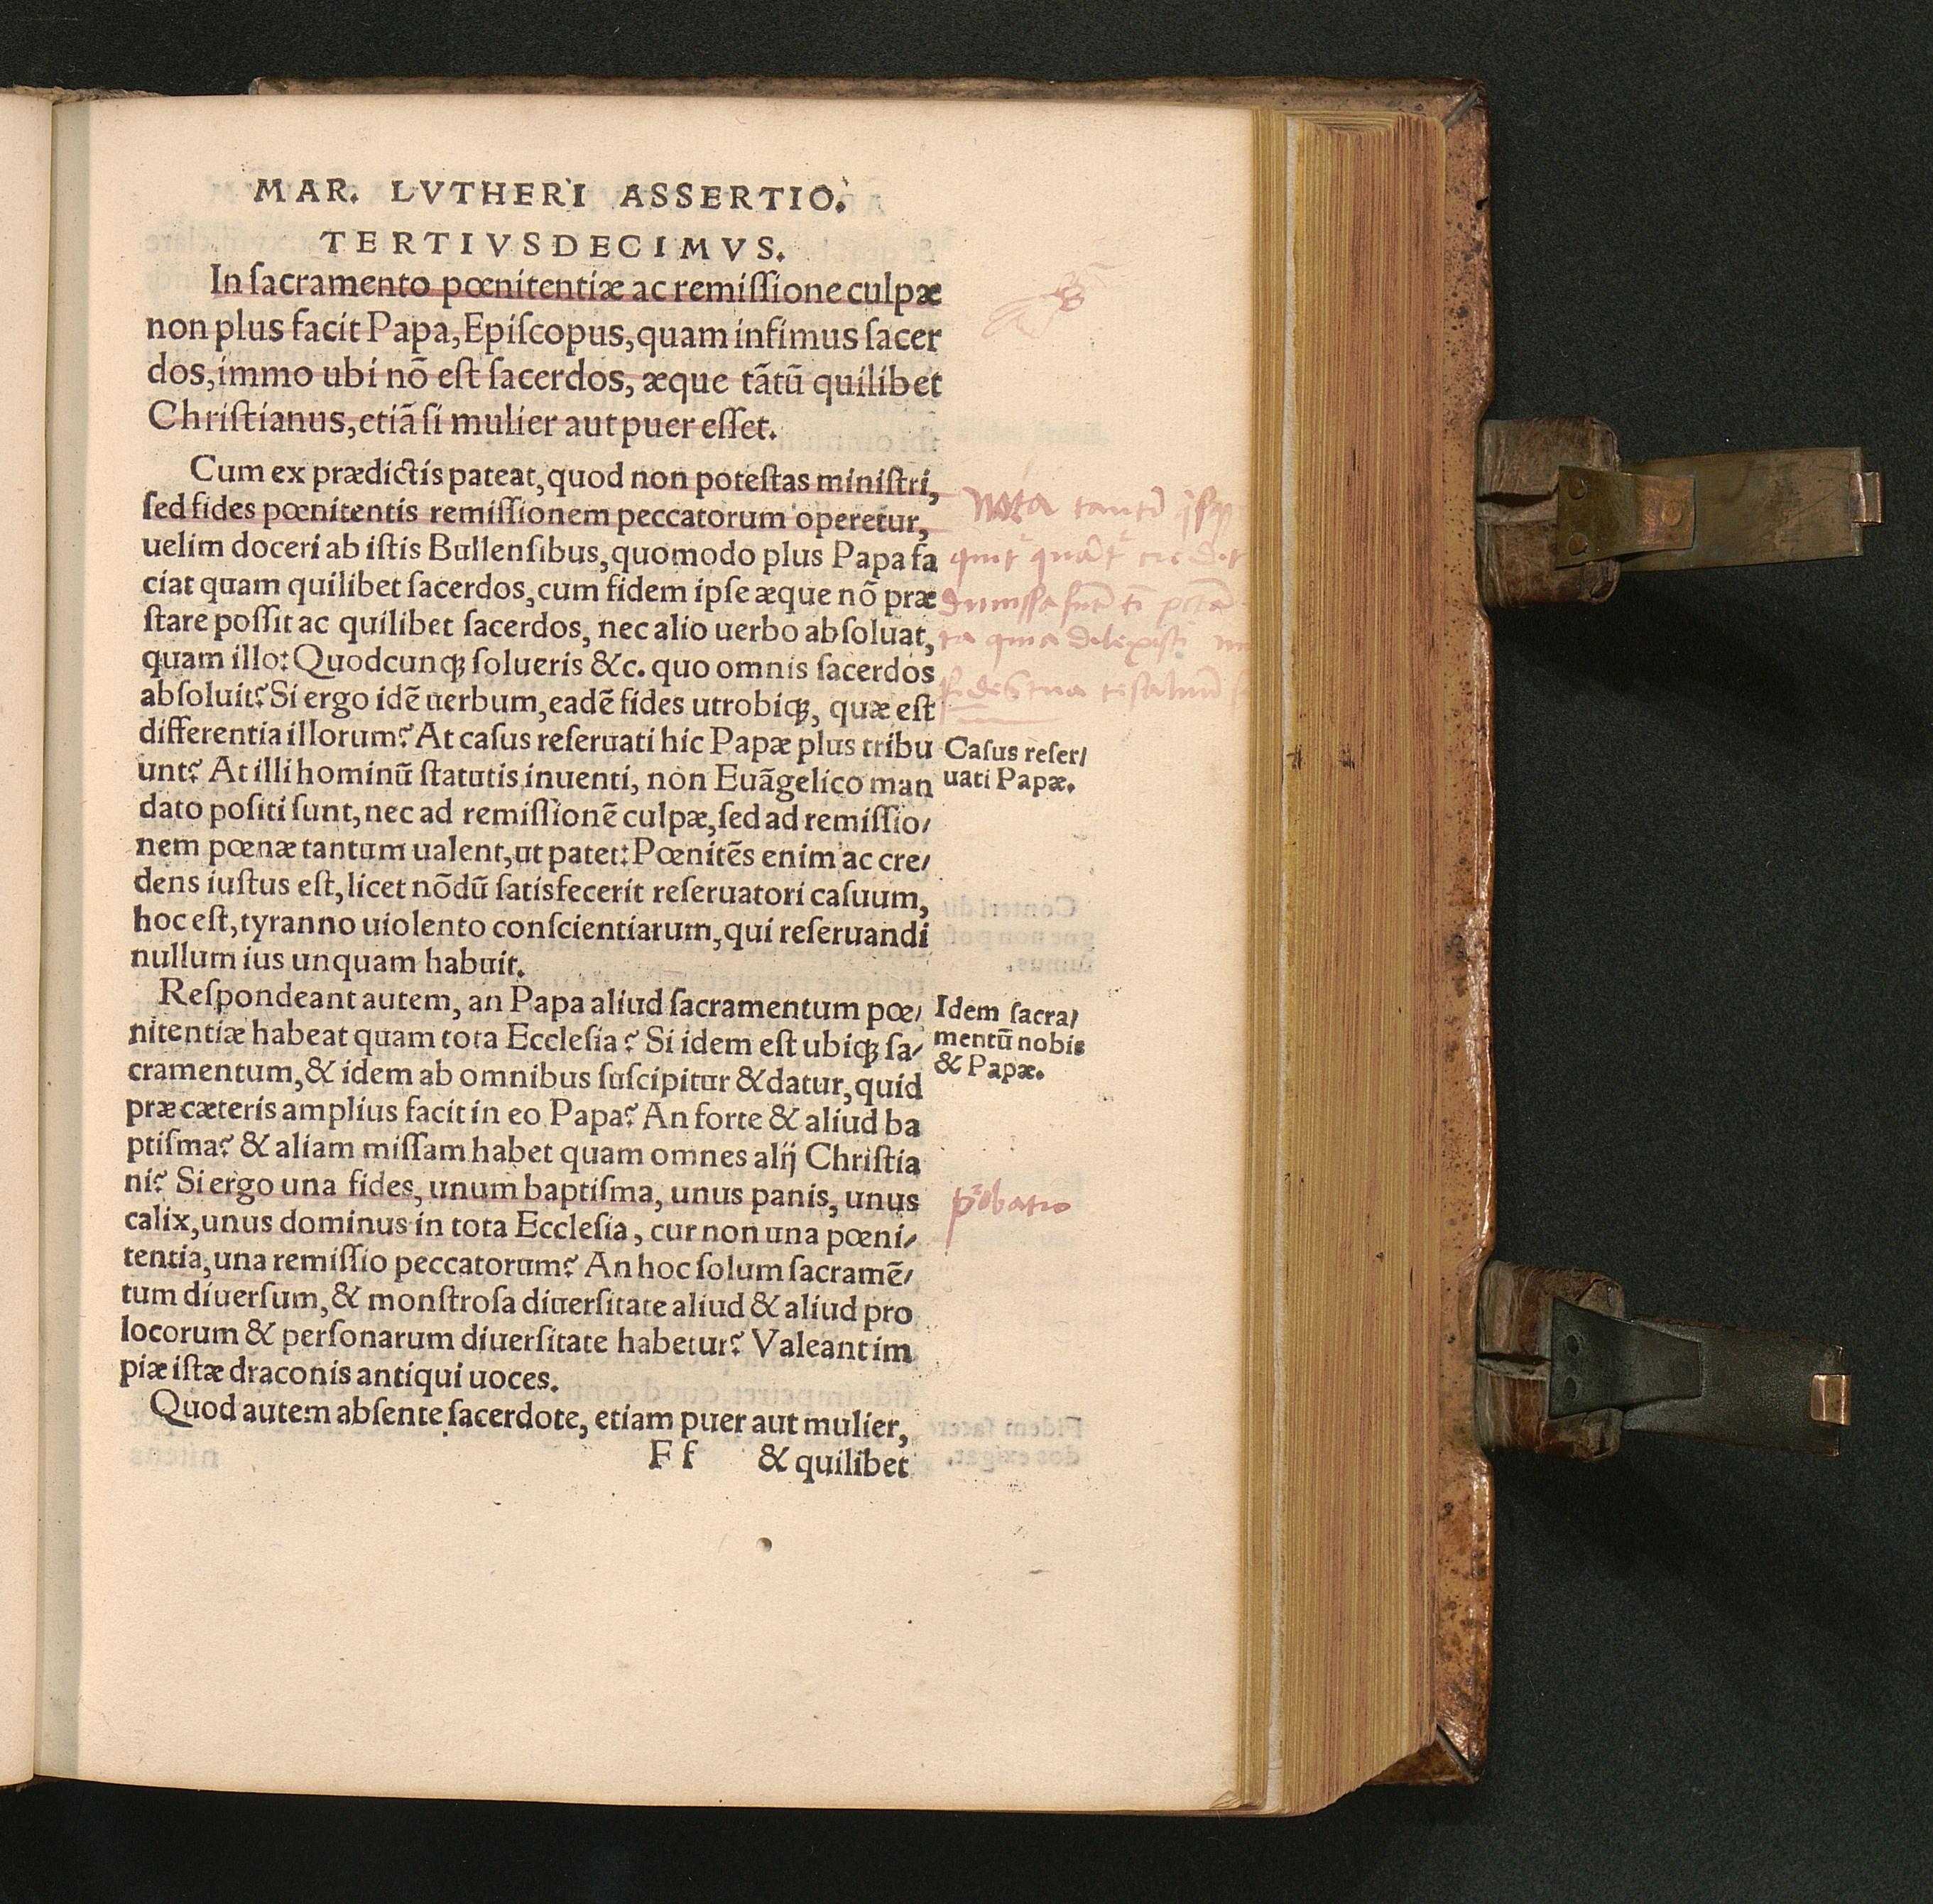 MAR. LVTHERI ASSERTIO.
TERTIVSDECIMVS.
In ſacramento pœnitentiæ ac remiſſione culpæ
non plus facit Papa, Epiſcopus, quam infimus ſacer
dos, immo ubi nõ eſt ſacerdos, æque tãtũ quilibet
Chriſtianus, etiã ſi mulier aut puer eſſet.
Cum ex prædictis pateat, quod non poteſtas miniſtri,
ſed fides pœnitentis remiſſionem peccatorum operetur,
uelim doceri ab iſtis Bullenſibus, quomodo plus Papa fa
ciat quam quilibet ſacerdos, cum fidem ipſe æque nõ præ
ſtare poſſit ac quilibet ſacerdos, nec alio uerbo abſoluat,
quam illo: Quodcunqꝫ ſolueris &c. quo omnis ſacerdos
abſoluit? Si ergo idẽ uerbum, eadẽ fides utrobiqꝫ, quæ eſt
differentia illorum? At caſus reſeruati hic Papæ plus tribu
unt? At illi hominũ ſtatutis inuenti, non Euãgelico man
dato poſiti ſunt, nec ad remiſſionẽ culpæ, ſed ad remiſſio/
nem pœnæ tantum ualent, ut patet: Pœnitẽs enim ac cre/
dens iuſtus eſt, licet nõdũ ſatisfecerit reſeruatori caſuum,
hoc eſt, tyranno uiolento conſcientiarum, qui reſeruandi
nullum ius unquam habuit.
Reſpondeant autem, an Papa aliud ſacramentum pœ/
nitentiæ habeat quam tota Eccleſia? Si idem eſt ubiqꝫ ſa/
cramentum, & idem ab omnibus ſuſcipitur & datur, quid
præ cæteris amplius facit in eo Papa? An forte & aliud ba
ptiſma? & aliam miſſam habet quam omnes alij Chriſtia
ni? Si ergo una fides, unum baptiſma, unus panis, unus
calix, unus dominus in tota Eccleſia, cur non una pœni/
tentia, una remiſſio peccatorum? An hoc ſolum ſacramẽ/
tum diuerſum, & monſtroſa diuerſitate aliud & aliud pro
locorum & perſonarum diuerſitate habetur? Valeant im
piæ iſtæ draconis antiqui uoces.
Quod autem abſente ſacerdote, etiam puer aut mulier,
F f & quilibet
Nota
Caſus reſer/
uati Papæ.
Idem ſacra/
mentũ nobis
& Papæ.
probatio